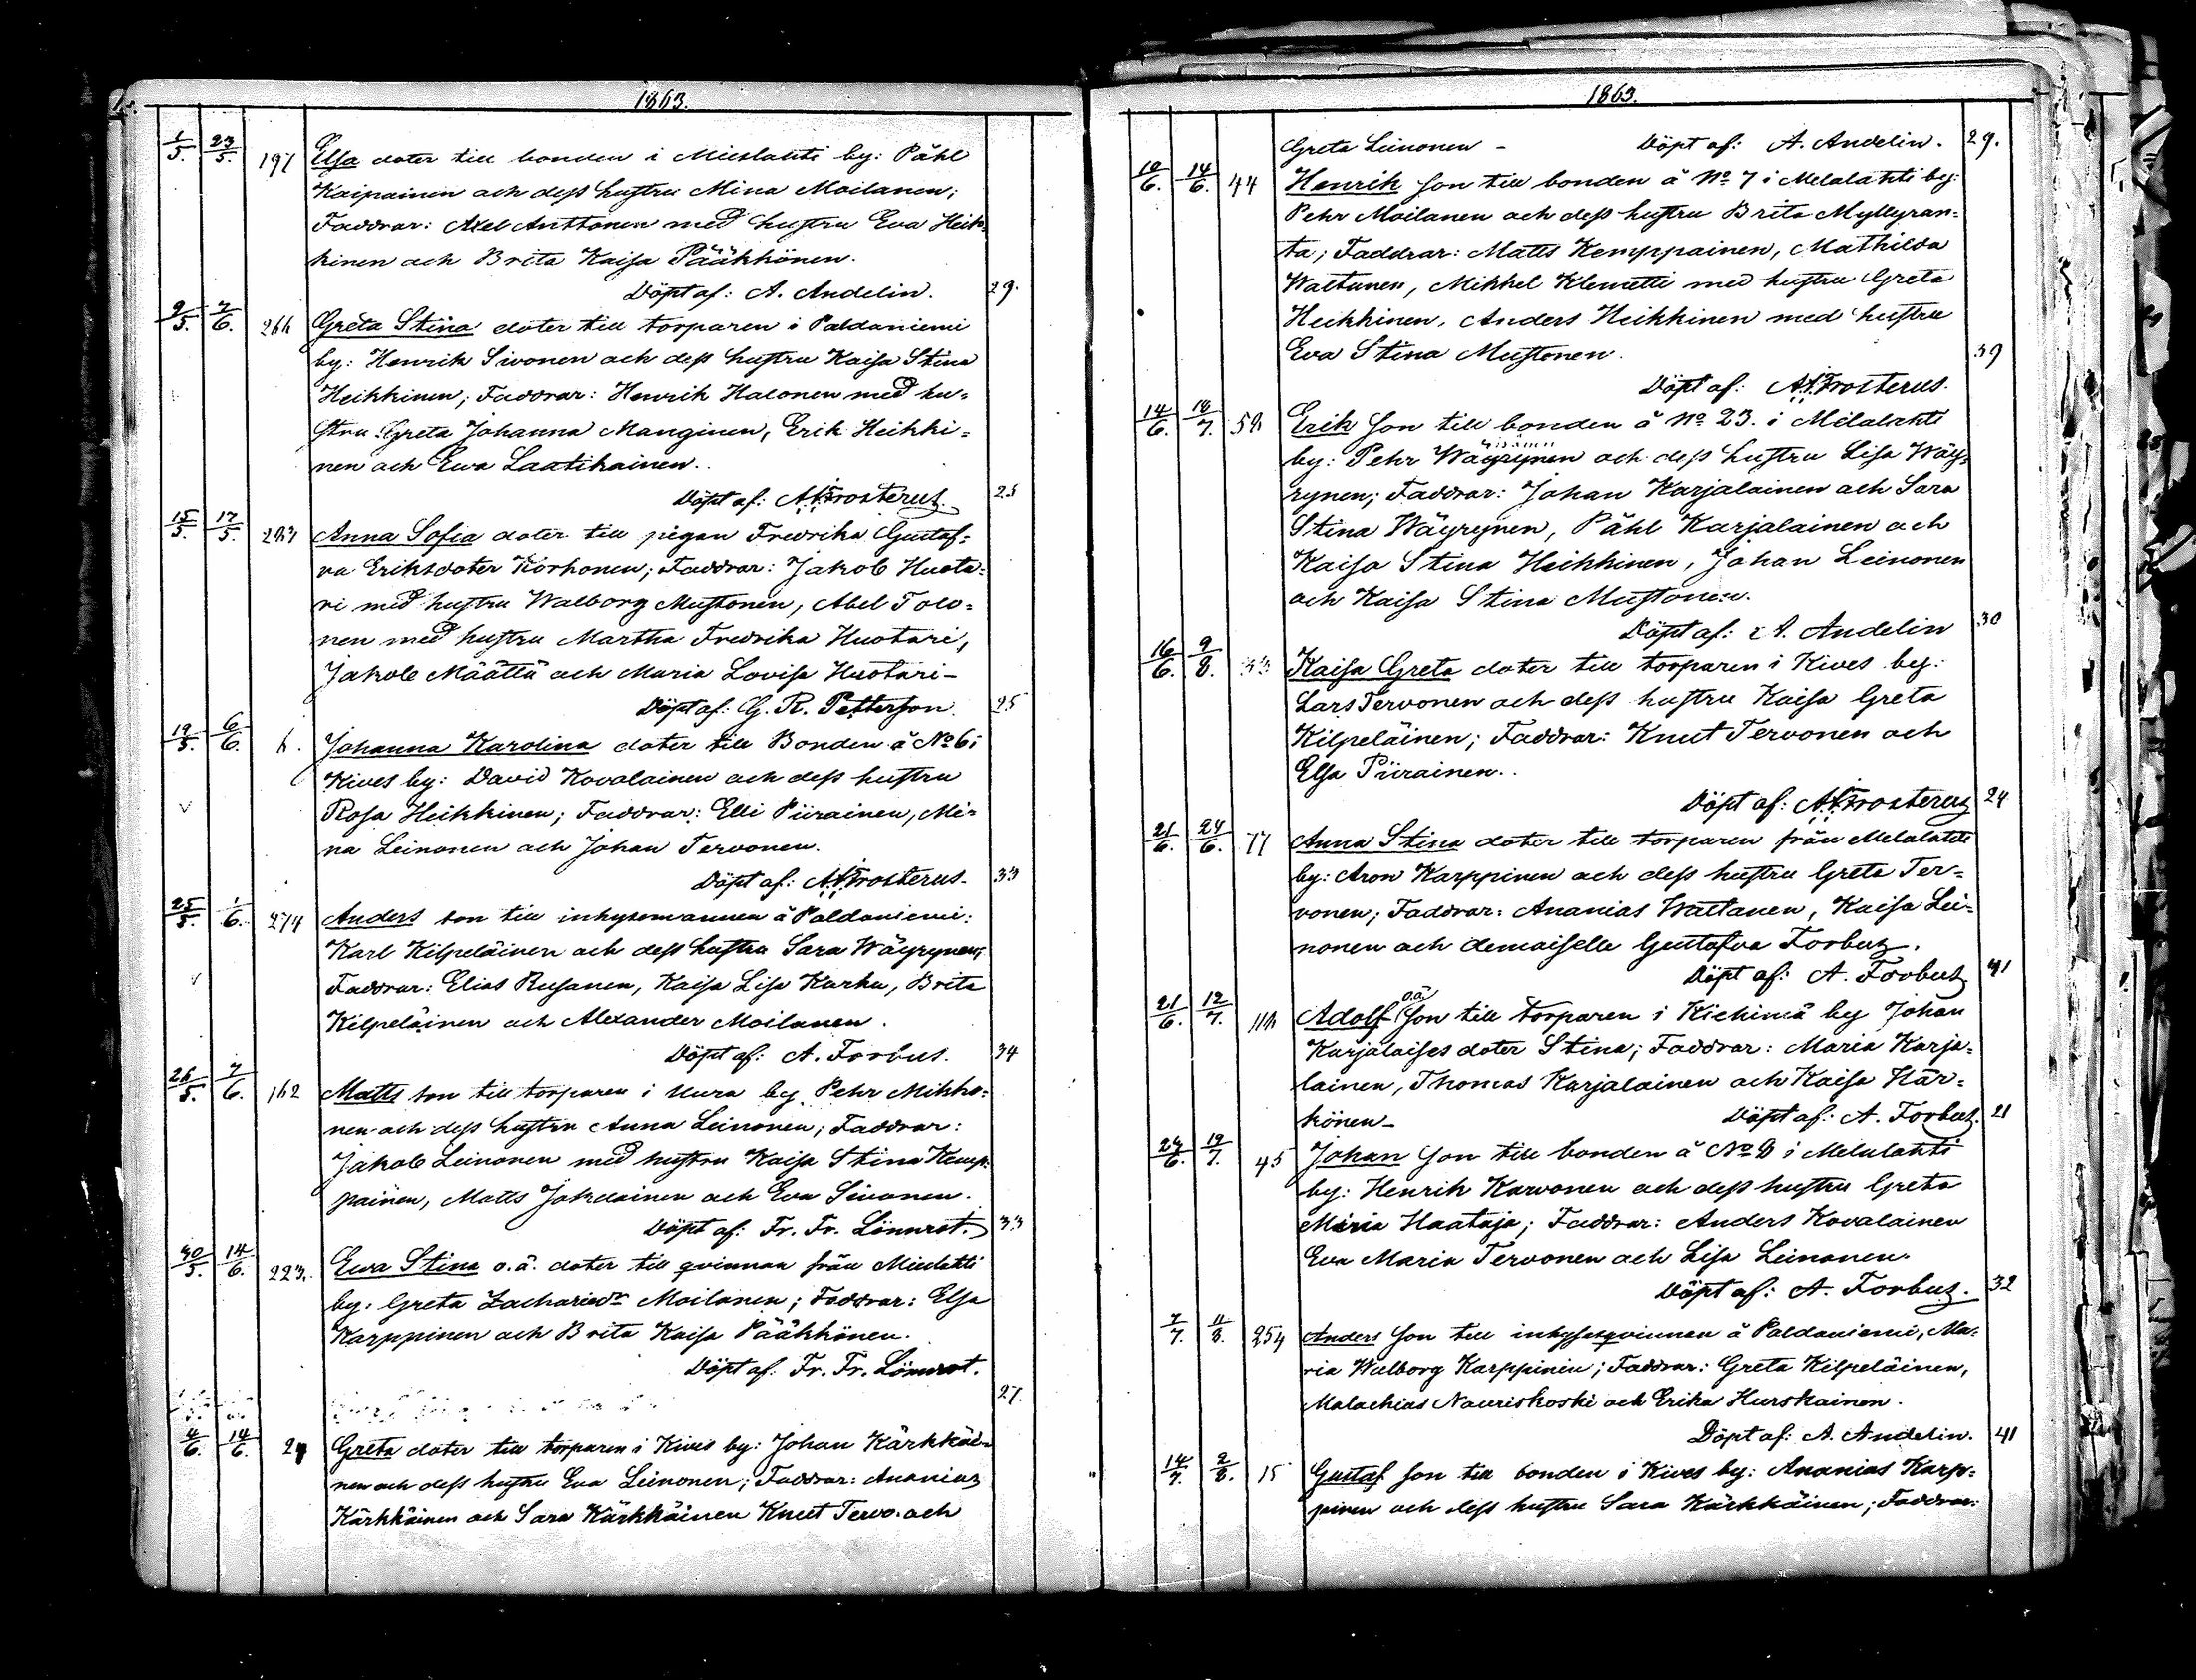 1863.
1/5. 23/5. 191 Elsa doter till bonden i Mieslahti by: Påhl
Kaipainen och dess hustru Mina Moilanen;
Faddrar: Axel Anttonen med hustru Eva Heik-
kinen och Brita Kaisa Pääkkönen.
Döpt af: A. Andelin. 29.
9/5. 7/6. 266 Greta Stina doter till torparen i Paldaniemi
by: Henrik Sivonen och dess hustru Kaisa Stina
Heikkinen; Faddrar: Henrik Halonen med hu=
stru Greta Johanna Manginen, Erik Heikki=
nen och Ewa Laatikainen.
Döpt af: A. Frosterus. 25
15/5. 17/5. 283 Anna Sofia doter till pigan Fredrika Gustaf=
va Eriksdoter Korhonen; Faddrar: Jakob Huota=
ri med hustru Walborg Mustonen, Abel Tolo=
nen med hustru Martha Fredrika Huotari,
Jakob Määttä och Maria Lovisa Huotari-
Döpt af: G. R. Petterson. 25
19/5. 6/6. Johanna Karolina doter till Bonden å No 6 i
Kives by: David Kovalainen och dess hustru
Rosa Heikkinen; Faddrar: Elli Piirainen, Mi-
na Leinonen och Johan Tervonen.
Döpt af: A. Frosterus. 33
25/5. 1/6. 274 Anders son till inhysomannen å Paldaniemi:
Karl Kilpeläinen och dess hustru Sara Wäyrynen;
Faddrar: Elias Rusanen, Kaisa Lisa Karhu, Brita
Kilpeläinen och Alexander Moilanen.
Döpt af: A. Forbus. 34
26/5. 7/6. 162 Matts son till torparen i Uura by Pehr Mikko=
nen och dess hustru Anna Leinonen; Faddrar:
Jakob Leinonen med hustru Kaisa Stina Kemp-
painen, Matts Jokelainen och Eva Sivonen.
Döpt af: Fr. Fr. Lönnrot. 33
30/5. 14/6. 223. Ewa Stina o.ä. doter till qvinnan från Mieslahti
by: Greta Zachariedr Moilanen; Faddrar: Elsa
Karppinen och Brita Kaisa Pääkkönen.
Döpt af: Fr. Fr. Lönnrot.
27.
4/6. 14/6. 24 Greta doter till torparen i Kives by: Johan Kärkkäi-
nen och dess hustru Eva Leinonen; Faddrar: Ananias
Kärkkäinen och Sara Kärkkäinen Knut Tervo. och
1863.
Greta Leinonen - Döpt af: A. Andelin. 29.
10/6. 14/6. 44 Henrik son till bonden å No 7 i Melalahti by:
Pehr Moilanen och dess hustru Brita Myllyran=
ta; Faddrar: Matts Kemppainen, Mathilda
Waltanen, Mikkel Klemetti med hustru Greta
Heikkinen, Anders Heikkinen med hustru
Eva Stina Mustonen. 39
Döpt af: A. Frosterus.
14/6. 18/7. 58 Erik son till bonden å No 23. i Melalahti
by: Pehr Wäyrynen och dess hustru Lisa Wäy=
rynen; Faddrar: Johan Karjalainen och Sara
Stina Wäyrynen, Påhl Karjalainen och
Kaisa Stina Heikkinen, Johan Leinonen
och Kaisa Stina Mustonen.
Döpt af: A. Andelin 30
16/6. 9/8. 33 Kaisa Greta doter till torparen i Kives by:
Lars Tervonen och dess hustru Kaisa Greta
Kilpeläinen; Faddrar: Knut Tervonen och
Elsa Piirainen.
Döpt af: A. Frosterus 24
21/6. 24/6. 77 Anna Stina doter till torparen från Melalahti
by: Aron Karppinen och dess hustru Greta Ter=
vonen; Faddrar: Ananias Waltanen, Kaisa Lei=
nonen och demoiselle Gustafva Forbus.
Döpt af: A. Forbus 41
21/6. 12/7. 116 Adolf o.ä. son till torparen i Kiehimä by Johan
Karjalaises doter Stina; Faddrar: Maria Karja=
lainen, Thomas Karjalainen och Kaisa Här=
könen- Döpt af: A. Forbus. 21
24/6. 19/7. 45 Johan son till bonden å No 8 i Melalahti
by: Henrik Karvonen och dess hustru Greta
Maria Haataja; Faddrar: Anders Kovalainen
Eva Maria Tervonen och Lisa Leinonen.
Döpt af: A. Forbus. 32
7/7. 11/8. 254 Anders son till inhysesqvinnan å Paldaniemi, Ma=
ria Walborg Karppinen; Faddrar: Greta Kilpeläinen,
Malachias Nauriskoski och Erika Hurskainen.
Döpt af: A. Andelin. 41
14/7. 2/8. 15 Gustaf son till bonden i Kives by: Ananias Karp=
pinen och dess hustru Sara Kärkkäinen; Faddrar: